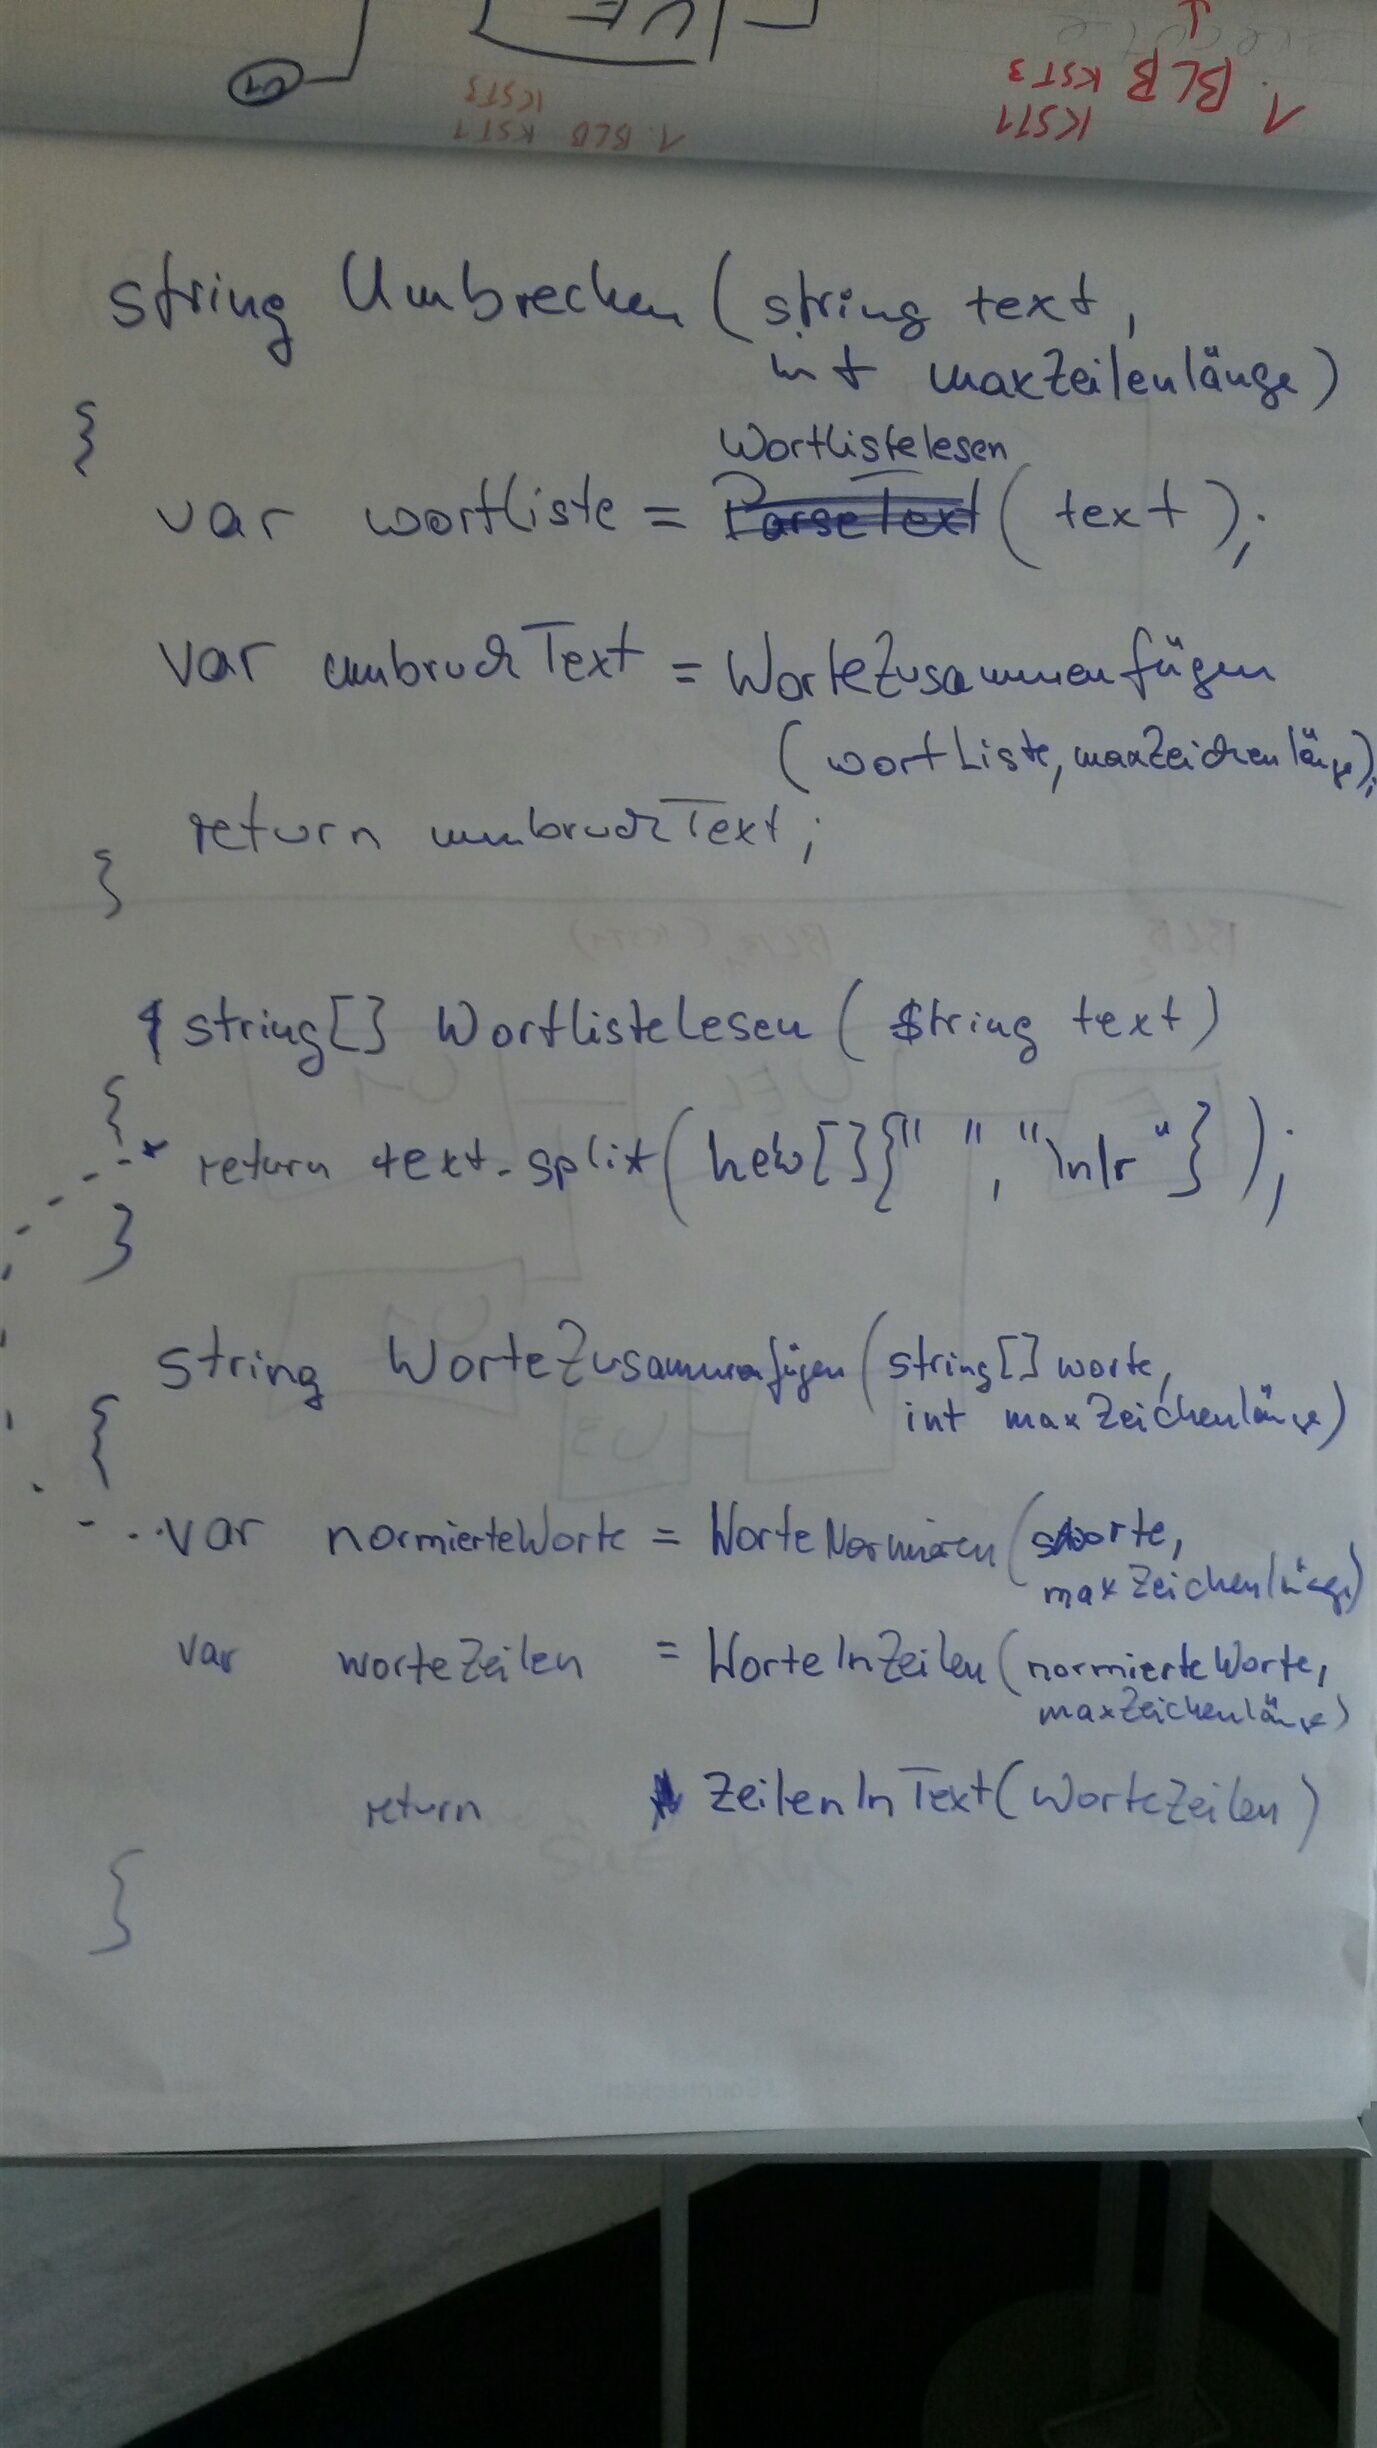 1. BLB KST1
KST3
1. BLB KST1
KST3
UE
string Umbrechen (string text,
int maxZeilenlänge)
{
Wortlistelesen
var wortliste = ParseText (text);
var umbruchText = WorteZusammenfügen
(wortListe, maxZeichenlänge);
return umbruchText;
}
string[] WortlisteLesen (string text)
{
return text.split(new[]{" ", "\n|r"});
}
string WorteZusammenfügen(string[] worte,
int maxZeichenlänge)
{
var normierteWorte = WorteNormieren(worte,
maxZeichenlänge)
var worteZeilen = WorteInZeilen(normierteWorte,
maxZeichenlänge)
return ZeilenInText(WorteZeilen)
}